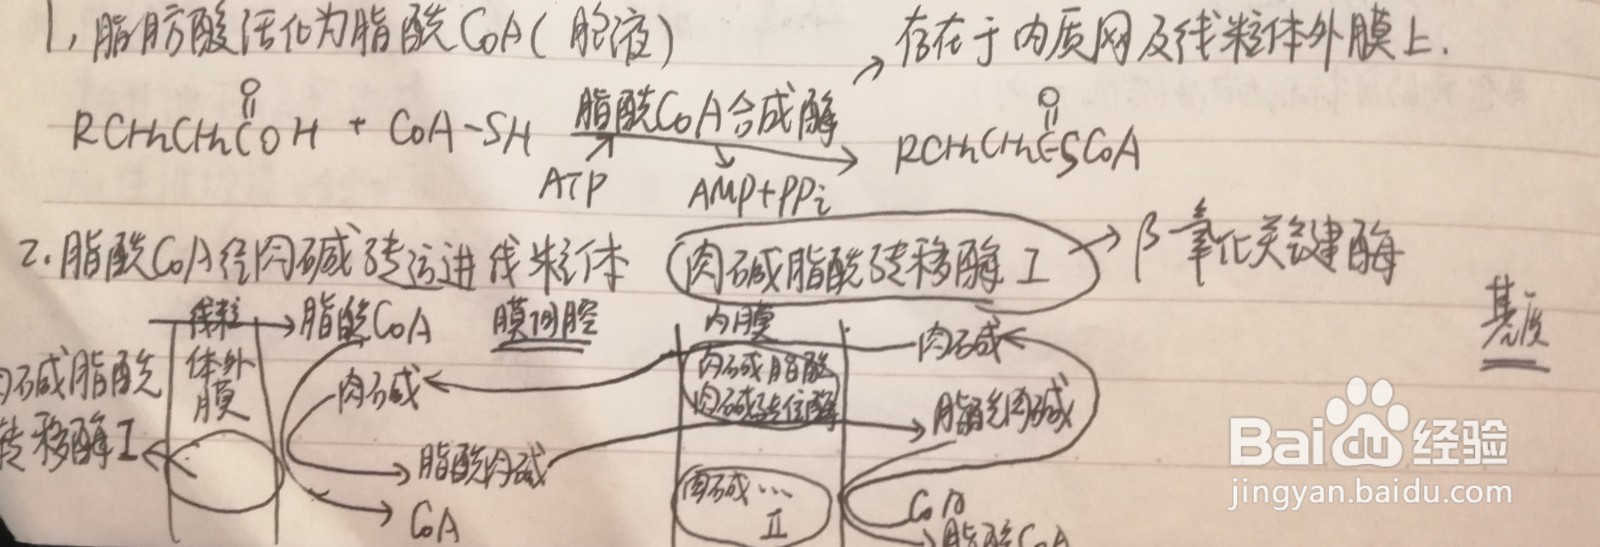 1,脂肪酸活化为脂酰CoA(胞液)
存在于内质网及线粒体外膜上.
O
RCH₂CH₂COH + CoA-SH
脂酰CoA合成酶
ATP
AMP+PPi
O
RCH₂CH₂C-SCoA
2.脂酰CoA经肉碱转运进线粒体
肉碱脂酰转移酶I
β氧化关键酶
线粒
体外
膜
脂酰CoA
膜间腔
内膜
肉碱
基质
肉碱脂酰
转移酶I
肉碱
肉碱脂酰
肉碱转位酶
脂酰肉碱
脂酰肉碱
CoA
肉碱…
II
CoA
脂酰CoA
Baidu经验
jingyan.baidu.com